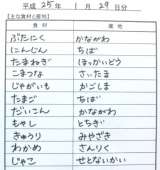 平成 25年 1月 29日分
【主な食材と産地】
食材 産地
ぶたにく かながわ
にんじん ちば
たまねぎ ほっかいどう
こまつな さいたま
じゃがいも かごしま
たまご ちば
だいこん かながわ
もやし とちぎ
きゅうり みやざき
わかめ さんりく
じゃこ せとないかい